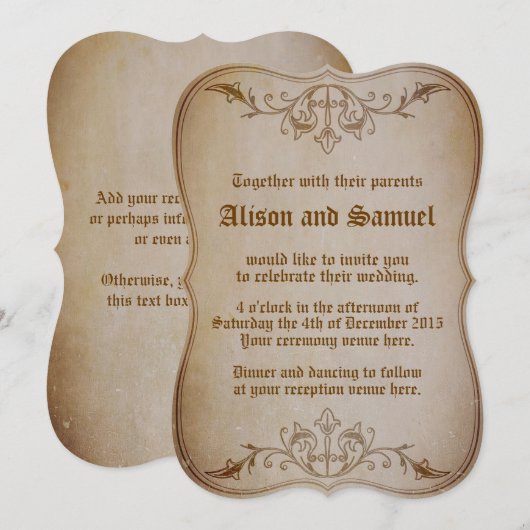 Together with their parents
Alison and Samuel
would like to invite you
to celebrate their wedding.
4 o'clock in the afternoon of
Saturday the 4th of December 2015
Your ceremony venue here.
Dinner and dancing to follow
at your reception venue here.
Add your rec
or perhaps inf
or even a
Otherwise, y
this text box